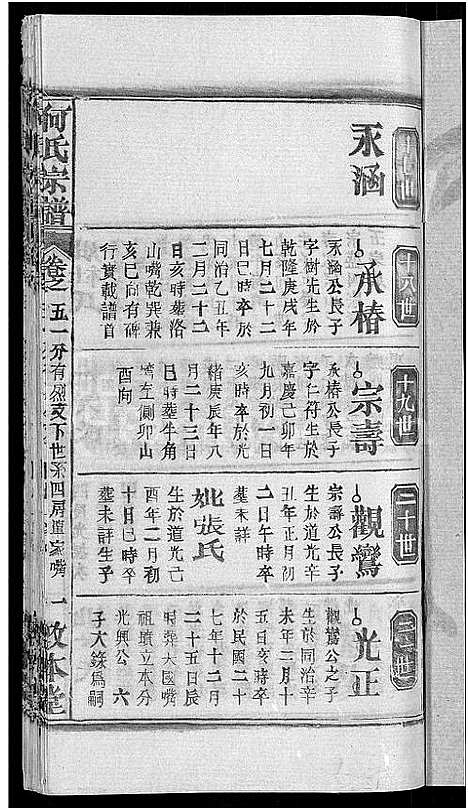 十七世
永涵
十八世
承椿
永涵公長子
字樹先生於
乾隆庚戌年
七月二十二
日巳時卒於
同治乙丑年
二月二十二
日亥時葬洛
山嘴乾巽兼
亥巳向有碑
行實載譜首
十九世
宗壽
承椿公長子
字仁符生於
嘉慶己卯年
九月初一日
亥時卒於光
緒庚辰年八
月二十三日
巳時葬牛角
塆左側卯山
酉向
二十世
觀鸞
宗壽公長子
生於道光辛
丑年正月初
二日午時卒
葬未詳
妣張氏
生於道光己
酉年二月初
十日巳時卒
葬未詳生子
光正
觀鸞公之子
生於同治辛
未年二月十
五日亥時卒
於民國二十
七年十二月
二十五日辰
時葬大園嘴
祖墳立本分
光興公 六
子大錄爲嗣
何氏宗譜
卷之五一分有烈支下世系四房道家嘴
一 敦本堂